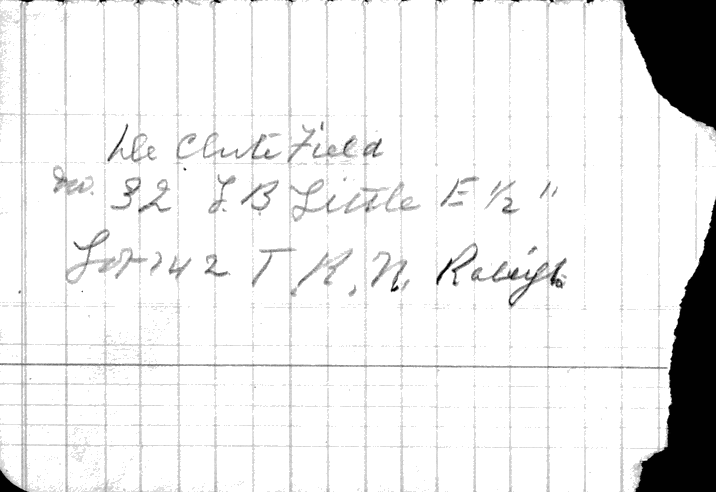 De Clute Field
No. 32 J. B. Little E 1/2 "
Lot 142 T. R. N. Raleigh